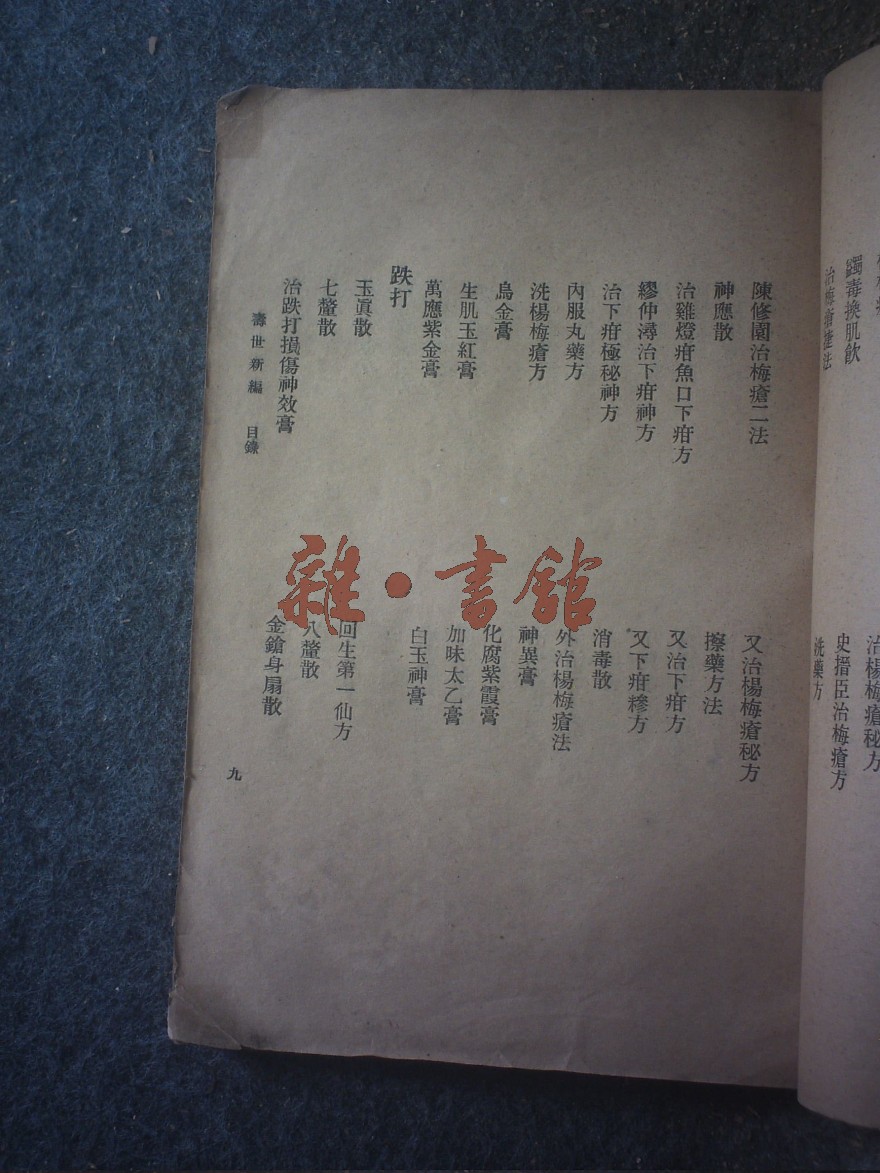 蠲毒換肌飲
治梅瘡捷法
治楊梅瘡秘方
史搢臣治梅瘡方
洗藥方
陳修園治梅瘡二法
又治楊梅瘡秘方
神應散
擦藥方法
治雞燈疳魚口下疳方
又治下疳方
繆仲淳治下疳神方
又下疳糝方
治下疳極秘神方
消毒散
內服丸藥方
外治楊梅瘡法
洗楊梅瘡方
神異膏
烏金膏
化腐紫霞膏
生肌玉紅膏
加味太乙膏
萬應紫金膏
白玉神膏
跌打
玉眞散
回生第一仙方
七釐散
八釐散
治跌打損傷神效膏
金鎗身扇散
壽世新編 目錄
九
雜·書館